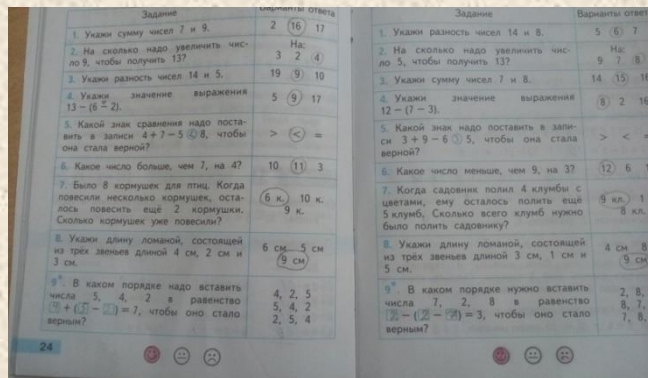 Задание
Варианты ответа
1. Укажи сумму чисел 7 и 9.
2 16 17
2. На сколько надо увеличить чис-
ло 9, чтобы получить 13?
На:
3 2 4
3. Укажи разность чисел 14 и 5.
19 9 10
4. Укажи значение выражения
13 – (6 – 2).
5 9 17
5. Какой знак сравнения надо поста-
вить в записи 4 + 7 – 5 < 8, чтобы
она стала верной?
> < =
6. Какое число больше, чем 7, на 4?
10 11 3
7. Было 8 кормушек для птиц. Когда
повесили несколько кормушек, оста-
лось повесить ещё 2 кормушки.
Сколько кормушек уже повесили?
6 к. 10 к.
9 к.
8. Укажи длину ломаной, состоящей
из трёх звеньев длиной 4 см, 2 см и
3 см.
6 см 5 см
9 см
9*. В каком порядке надо вставить
числа 5, 4, 2 в равенство
4 + (5 – 2) = 7, чтобы оно стало
верным?
4, 2, 5
5, 4, 2
2, 5, 4
24
Задание
Варианты ответ
1. Укажи разность чисел 14 и 8.
5 6 7
2. На сколько надо увеличить чис-
ло 5, чтобы получить 13?
На:
9 7 8
3. Укажи сумму чисел 7 и 8.
14 15 16
4. Укажи значение выражения
12 – (7 – 3).
8 2 16
5. Какой знак надо поставить в запи-
си 3 + 9 – 6 > 5, чтобы она стала
верной?
> < =
6. Какое число меньше, чем 9, на 3?
12 6
7. Когда садовник полил 4 клумбы с
цветами, ему осталось полить ещё
5 клумб. Сколько всего клумб нужно
было полить садовнику?
9 кл. 1
8 кл.
8. Укажи длину ломаной, состоящей
из трёх звеньев длиной 3 см, 1 см и
5 см.
4 см 8
9 см
9*. В каком порядке нужно вставить
числа 7, 2, 8 в равенство
– ( – ) = 3, чтобы оно стало
верным?
2, 8,
8, 7,
7, 8,